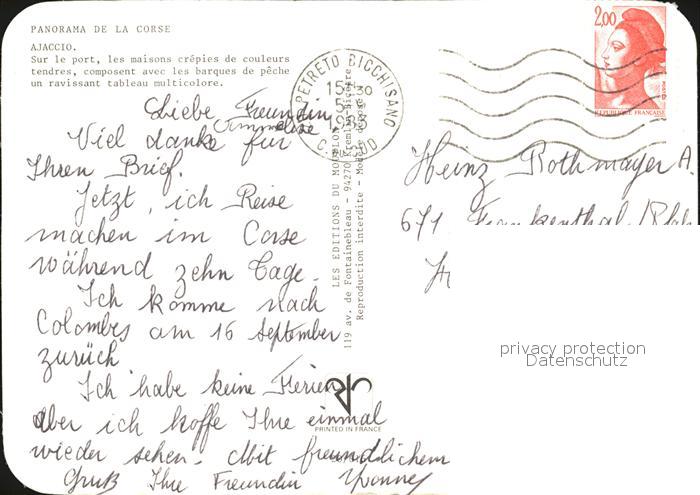 PANORAMA DE LA CORSE
AJACCIO.
Sur le port, les maisons crépies de couleurs
tendres, composent avec les barques de pêche
un ravissant tableau multicolore.
Liebe Freundin
Viel danke für
Ihren Brief.
Jetzt, ich Reise
machen im Corse
während zehn Tage.
Ich komme nach
Colombes am 16 September
zurück
Ich habe keine Ferien
Aber ich hoffe Ihre einmal
wieder sehen. Mit freundlichem
Gruß Ihre Freundin Yvonne
LES EDITIONS DU
119 av. de Fontainebleau - 94270 Kremlin-Bicêtre
Reproduction interdite - Modèle déposé
PRINTED IN FRANCE
PETRETO BICCHISANO
15H30
5-9
1983
2,00
POSTES
REPUBLIQUE FRANCAISE
Heinz Rothmayer A.
671 Frankenthal/Pfalz
privacy protection
Datenschutz